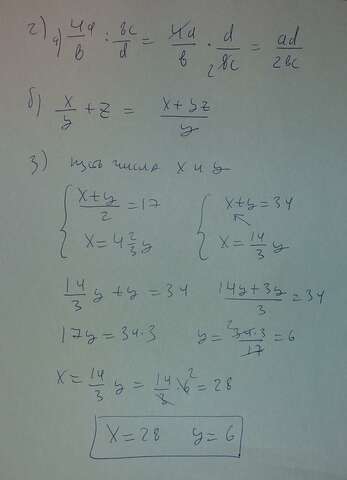 2) а) 4a/b : 8c/d = 4a/b · d/2 8c = ad/2bc
б) x/y + z = x+yz/y
3) пусть числа x и y
{ x+y/2 = 17 { x+y = 34
x = 4 2/3 y x = 14/3 y
14/3 y + y = 34 14y+3y/3 = 34
17y = 34·3 y = 2 34·3/17 = 6
x = 14/3 y = 14/3 · 6 2 = 28
x = 28 y = 6